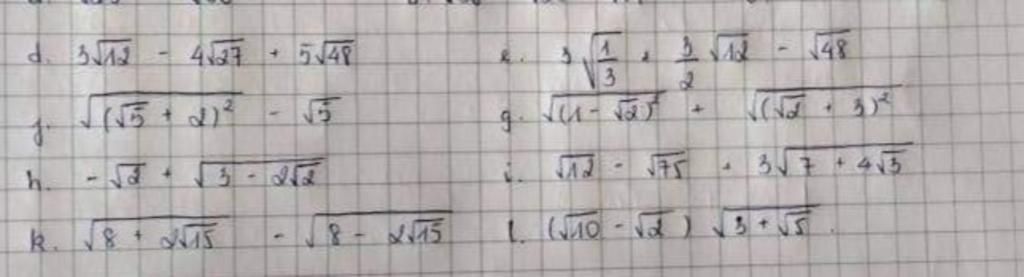 d. 3√12 - 4√27 + 5√48
e. 3√(1/3) + 3/2 √12 - √48
f. √((√5 + 2)²) - √5
g. √((1 - √2)²) + √((√2 + 3)²)
h. -√2 + √(3 - 2√2)
i. √12 - √75 + 3√(7 + 4√3)
k. √(8 + 2√15) - √(8 - 2√15)
l. (√10 - √2) √(3 + √5).